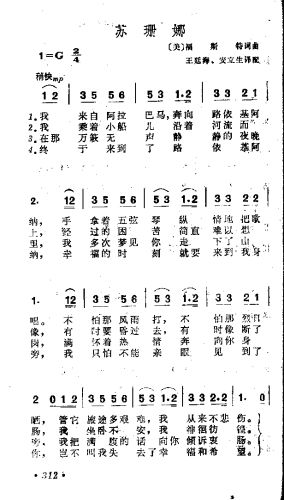 苏珊娜
(美)福斯特词曲
1=G 2/4
王廷海、安立生译配
稍快mp
12 | 35 56 | 53 1.2 | 33 21 |
1.我 来自阿拉 巴马,奔向 路依基阿
2.我 乘着小船 儿沿着 河流而
3.在那 万籁无 声静 静的夜晚
4.终 于来到 了路 依基阿
2. 12 | 35 56 | 53 1.2 | 33 22 |
纳,手 拿着五弦 琴纵 情地把歌
上,经 过的困苦 简直 难以想
里,我 多次梦见 你走 下了山
纳,幸 福的时 刻就要 来到我身
1. 12 | 35 56 | 53 1.2 | 33 21 |
唱。不 怕那风雨 打,不 怕那烈日
像,有 时要昏过 去,有 时像断了
岗,满 怀着热 情奔 向你身
旁,我 只怕不能 亲眼 见到
2 012 | 35 56 | 53 1.2 | 33 22 | 1. |
晒,管它 旅途多艰 难,我 从来不悲 伤。
肠,我 坐卧不 安,我 徘徊彷 徨。
旁,我把 满腹的 话向你 倾诉衷 肠。
你,岂不 叫我失 去了幸 福和希 望。
·312·